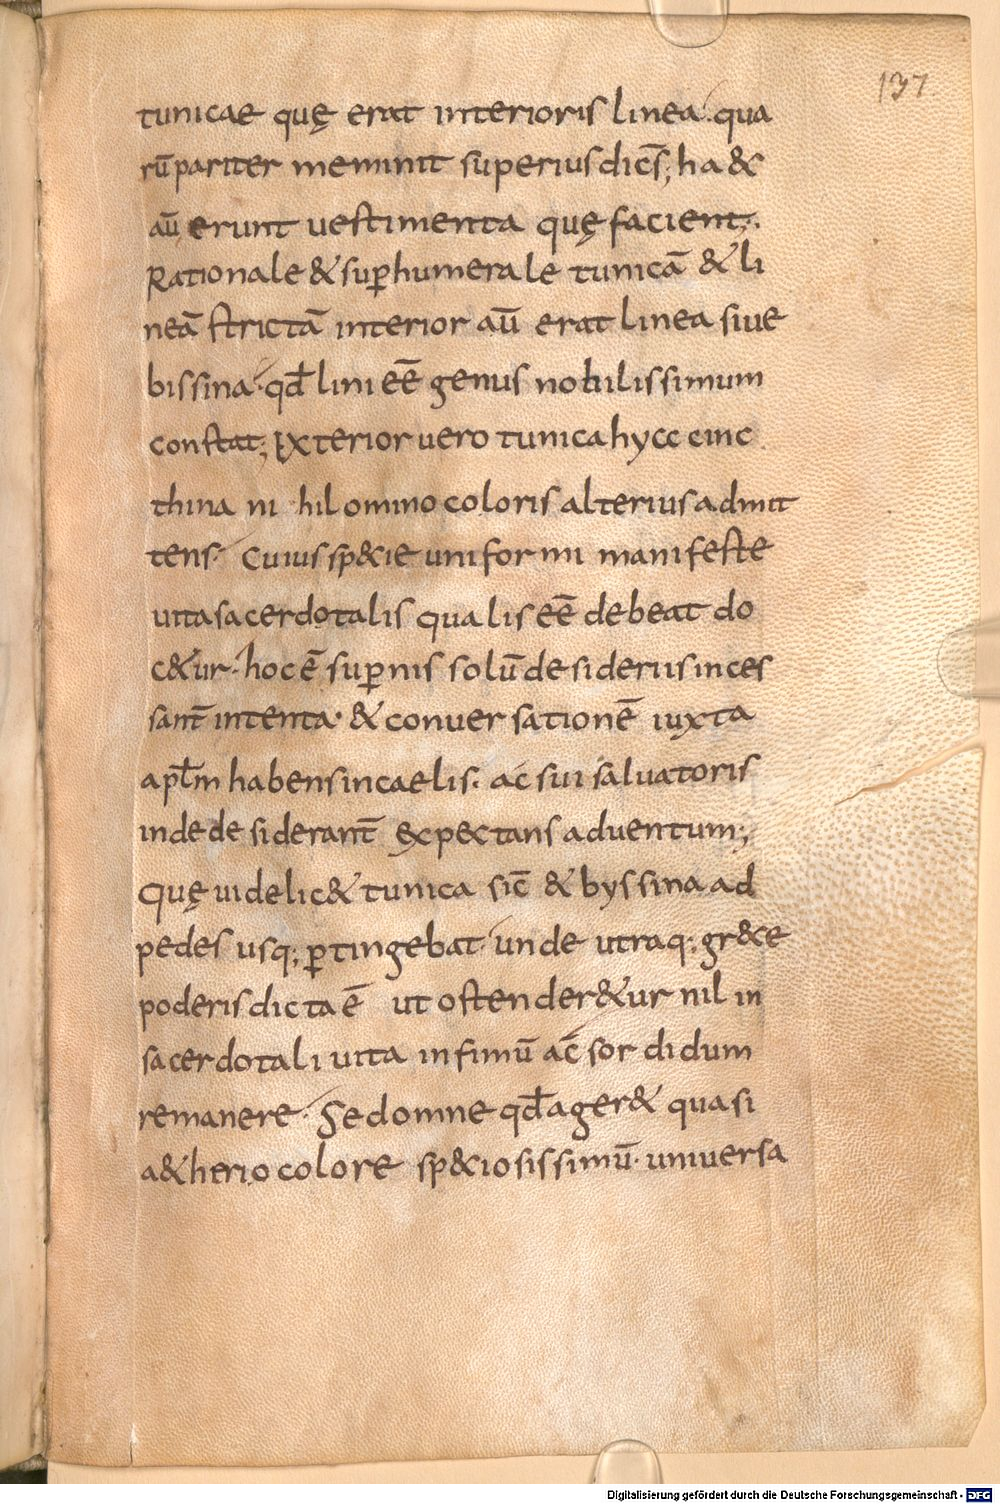 137
tunicae quę erat interioris linea. qua
rū pariter meminit superius dicēs; ha&
aū erunt uestimenta quę facient;.
Rationale & suꝑhumerale tunicā & li
neā strictā interior aū erat linea siue
bissina. qđ lini eē genus nobilissimum
constat; Exterior uero tunica hycceinc
thina nihil omino coloris alterius admit
tens. Cuius sp&ie uniformi manifeste
uita sacerdotalis qualis eē debeat do
c&ur. hoc ē suꝑnis solū desideriis inces
sant̄ intenta. & conuersationē iuxta
apłm habens in caelis. ac sui saluatoris
inde desiderant̄ expectans aduentum;
Quę uidelic& tunica sic̄ & byssina ad
pedes usq; ꝑtingebat. unde utraq; gr&ce
poderis dicta ē ut ostender&ur nil in
sacerdotali uita infimū ac̄ sordidum
remanere. Sed omne qđ ager& quasi
a&herio colore sp&iosissimū. uniuersa
Digitalisierung gefördert durch die Deutsche Forschungsgemeinschaft - DFG